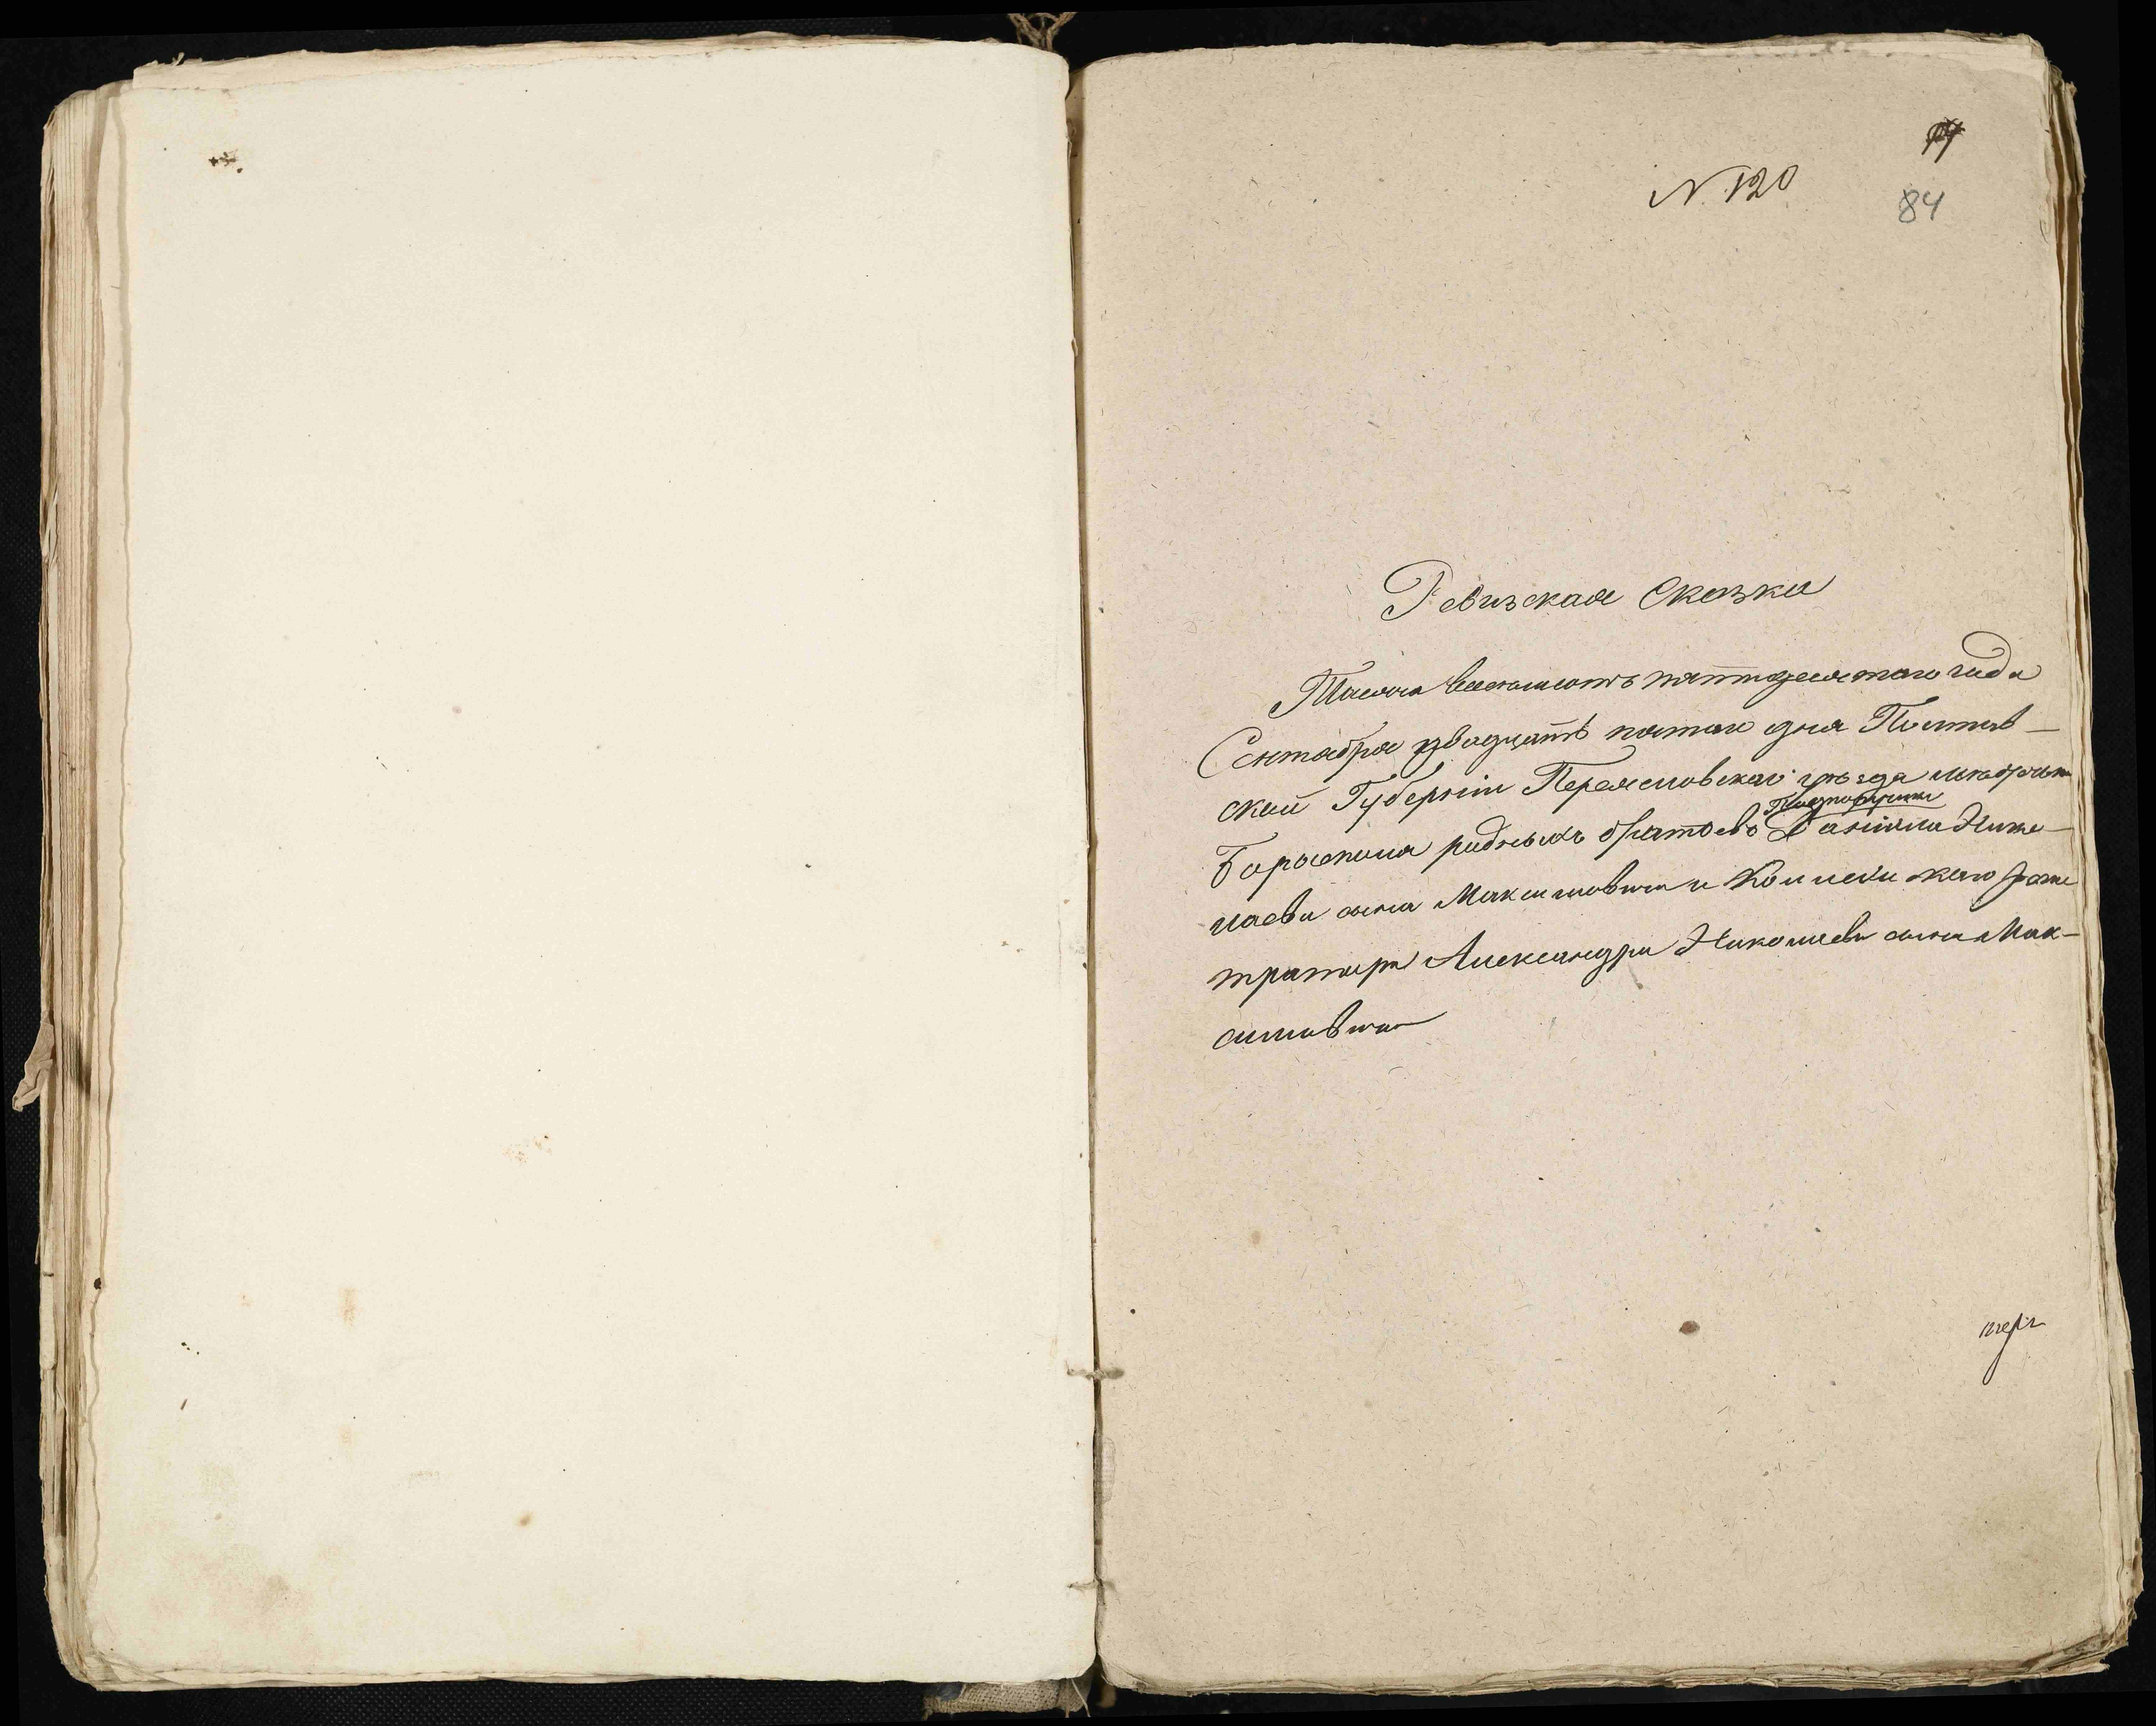 N. 120
84
Ревизская Сказка
Тысяча восемьсотъ пятьдесятаго года
Сентября двадцать пятаго дня Полтав-
ской Губерніи Переясловскаго уезда мѣстечка
Борисполя родныхъ братьевъ Подпоручика Данiила Нико-
лаева сына Максимовича и Коллежскаго Регис
тратора Александра Николаева сына Мак-
симовича